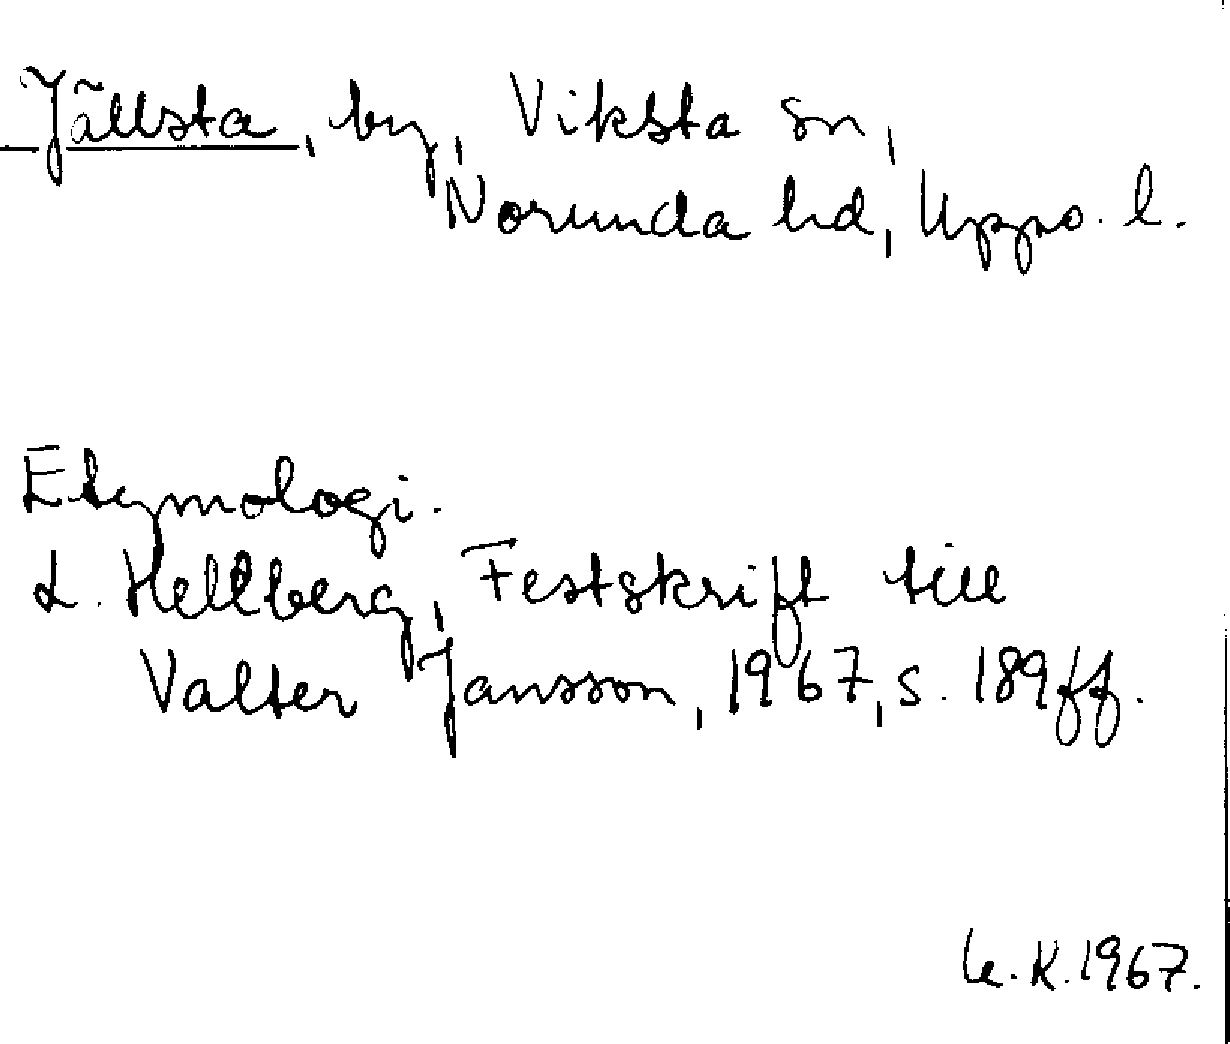 Jällsta, by, Viksta sn,
Norunda hd, Upps. l.
Etymologi.
L. Hellberg, Festskrift till
Valter Jansson, 1967, s. 189ff.
K. 1967.